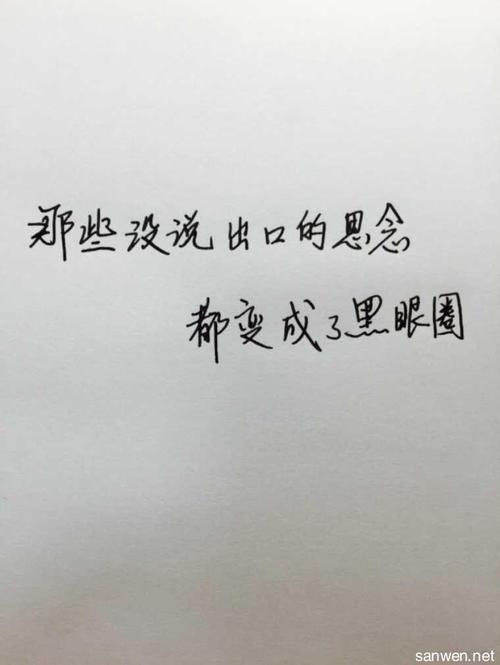 那些没说出口的思念
都变成了黑眼圈
sanwen.net